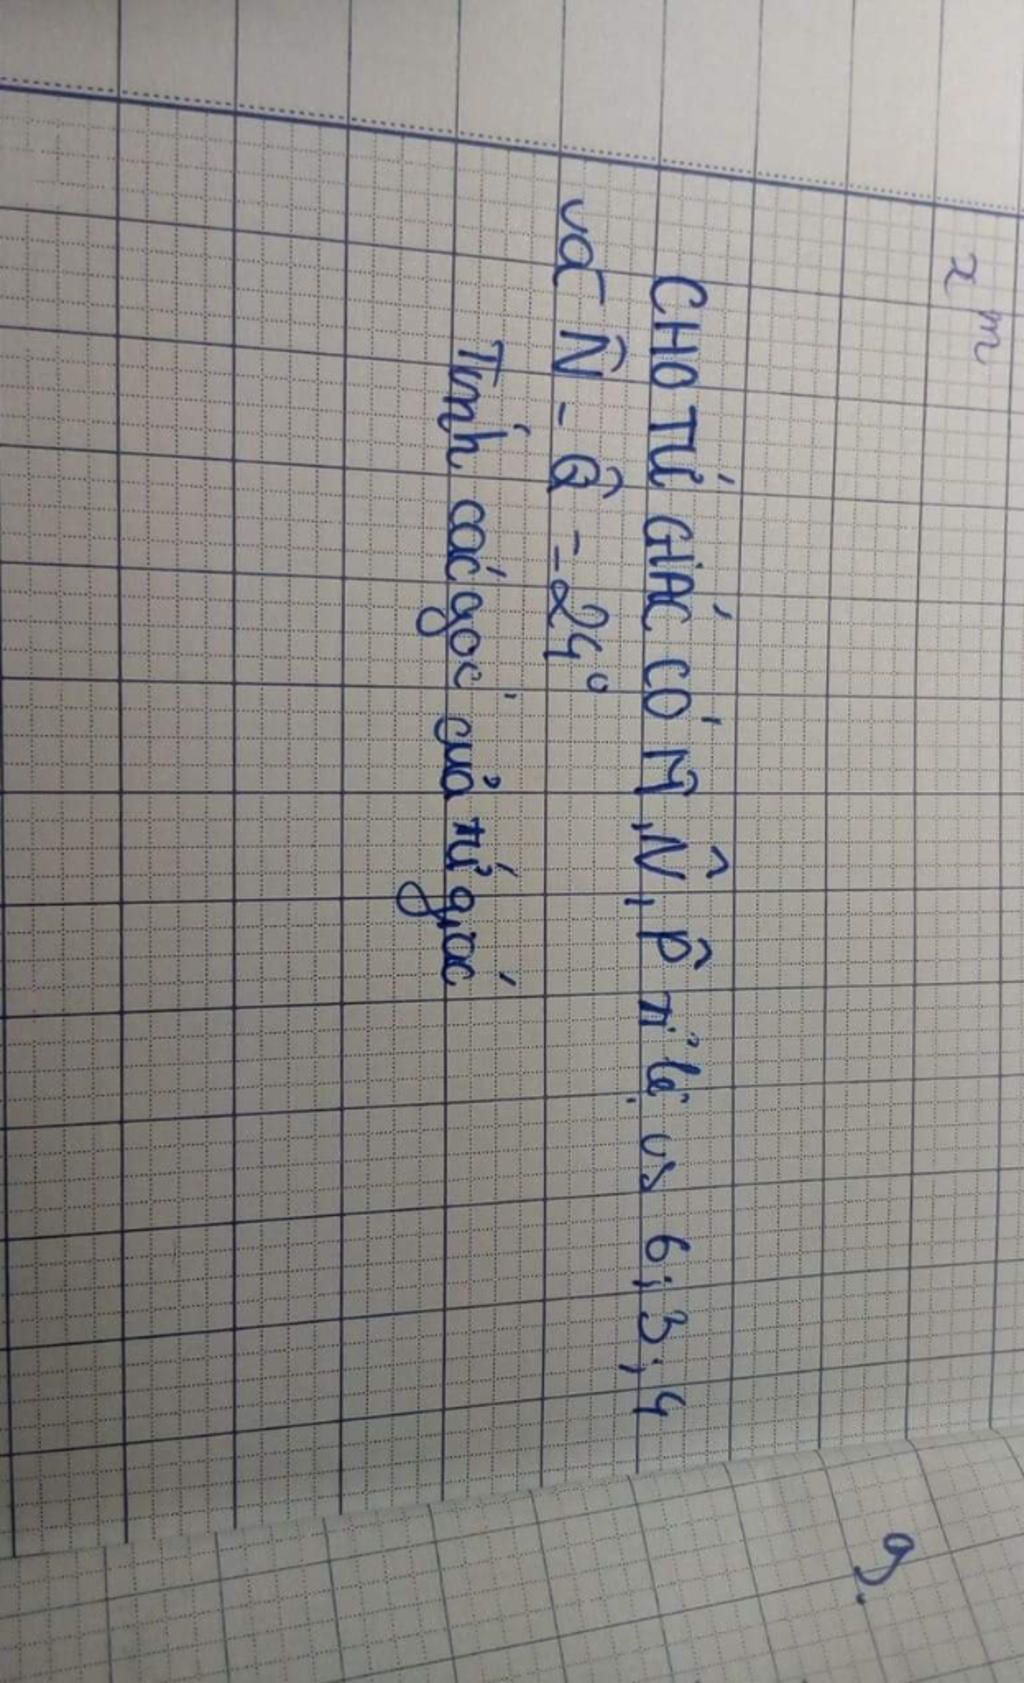 x m
CHO TỨ GIÁC CÓ M̂, N̂, P̂ tỉ lệ vs 6; 3; 4
và N̂ - Q̂ = 24°
Tính các góc của tứ giác